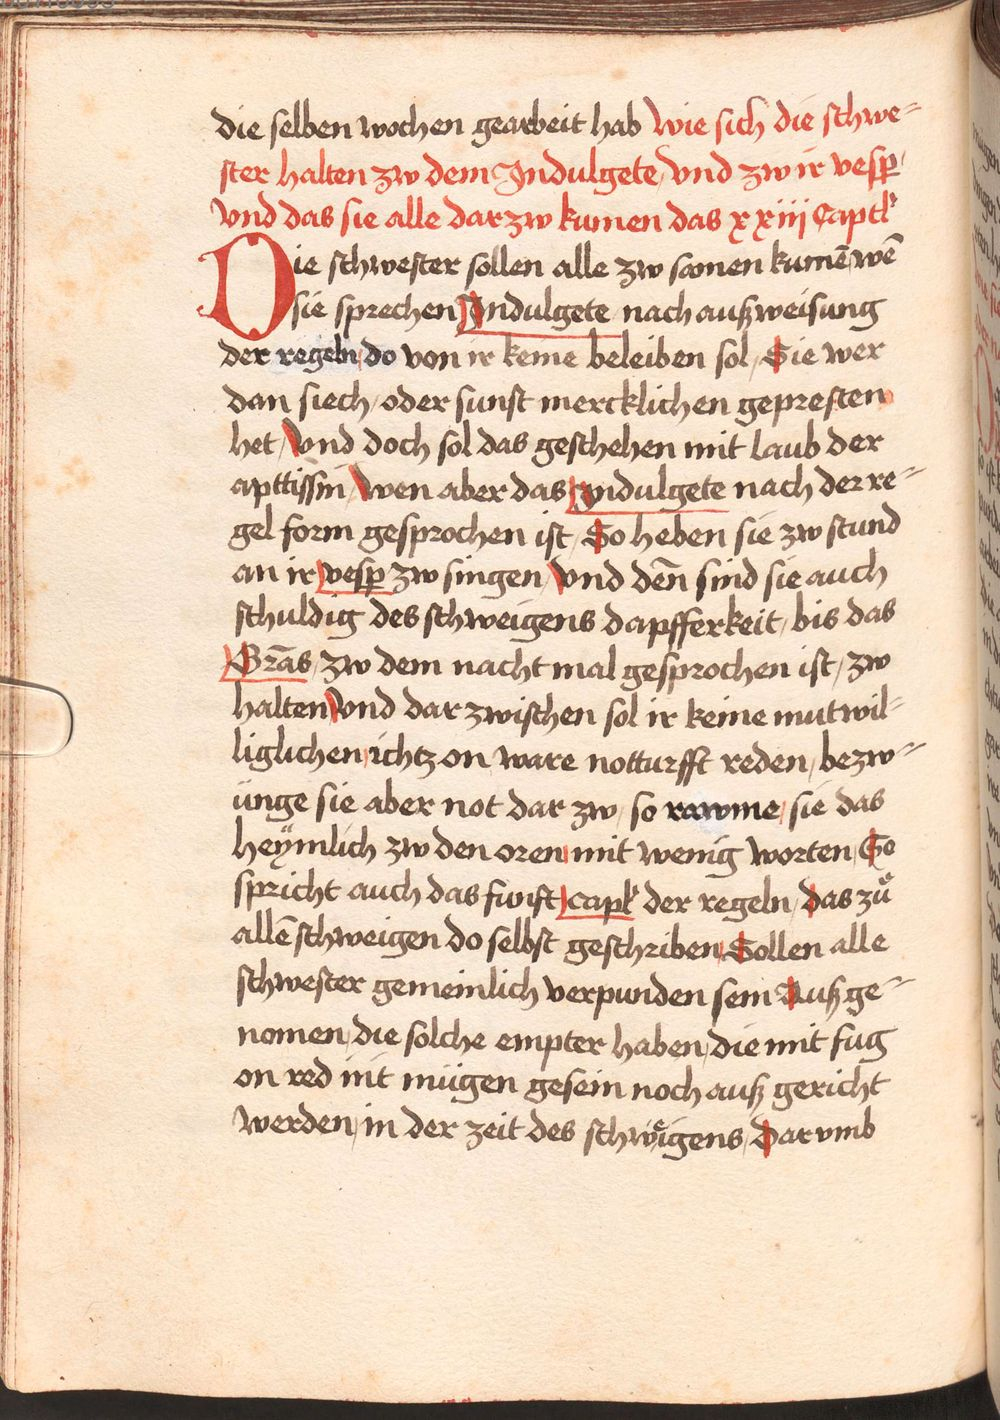 die selben wochen gearbeit hab Wie sich die schwe-
ster halten zw dem Indulgete, vnd zw ir vesp̄
Vnd das sie alle darzw kumen das xxiij Captl
Die schwester sollen alle zw samen kumē, wē
sie sprechen Indulgete, nach außweisung
der regeln, do von ir keine beleiben sol, Sie wer
dan siech, oder sunst mercklichen gepresten
het, Vnd doch sol das geschehen mit laub der
apttissin, Wen aber das Indulgete nach der re-
gel form gesprochen ist, So heben sie zw stund
an ir vesp̄ zw singen, Vnd deñ sind sie auch
schuldig des schweigens dapfferkeit, bis das
Grās, zw dem nacht mal gesprochen ist, zw
halten Vnd dar zwischen sol ir keine mutwil-
liglichen, ichtz on ware notturfft reden, bezw-
ünge sie aber not dar zw, so rawme, sie das
heÿmlich zw den oren, mit wenig worten, So
spricht auch das funft capl der regeln, das zů
allē schweigen do selbst geschriben, Sollen alle
schwester gemeinlich verpunden sein Außge-
nomen, die solche empter haben, die mit fug
on red nit mügen gesein noch auß gericht
werden, in der zeit des schweigens, Darumb